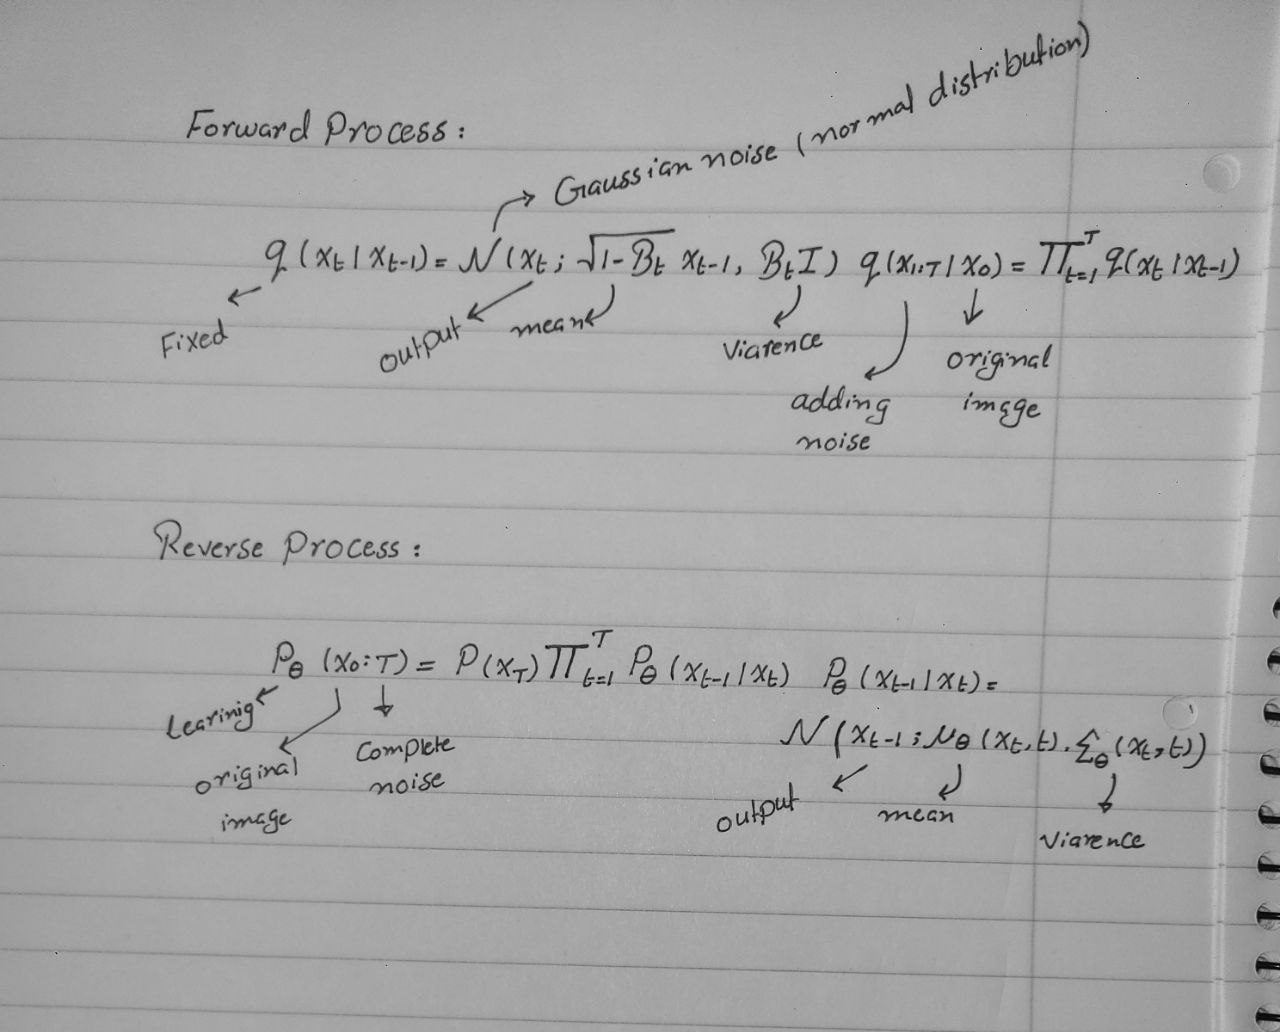 Forward Process:
Gaussian noise (normal distribution)
q(xt | xt-1) = N(xt; √1-Bt xt-1, BtI) q(x1:T | x0) = ∏ᵀt=1 q(xt | xt-1)
Fixed
output
mean
Viarence
adding
noise
original
image
Reverse Process:
Pθ (x0:T) = P(xT) ∏ᵀt=1 Pθ (xt-1 | xt) Pθ (xt-1 | xt) =
N(xt-1; μθ (xt, t), Σθ (xt, t))
Learinig
original
image
Complete
noise
output
mean
Viarence